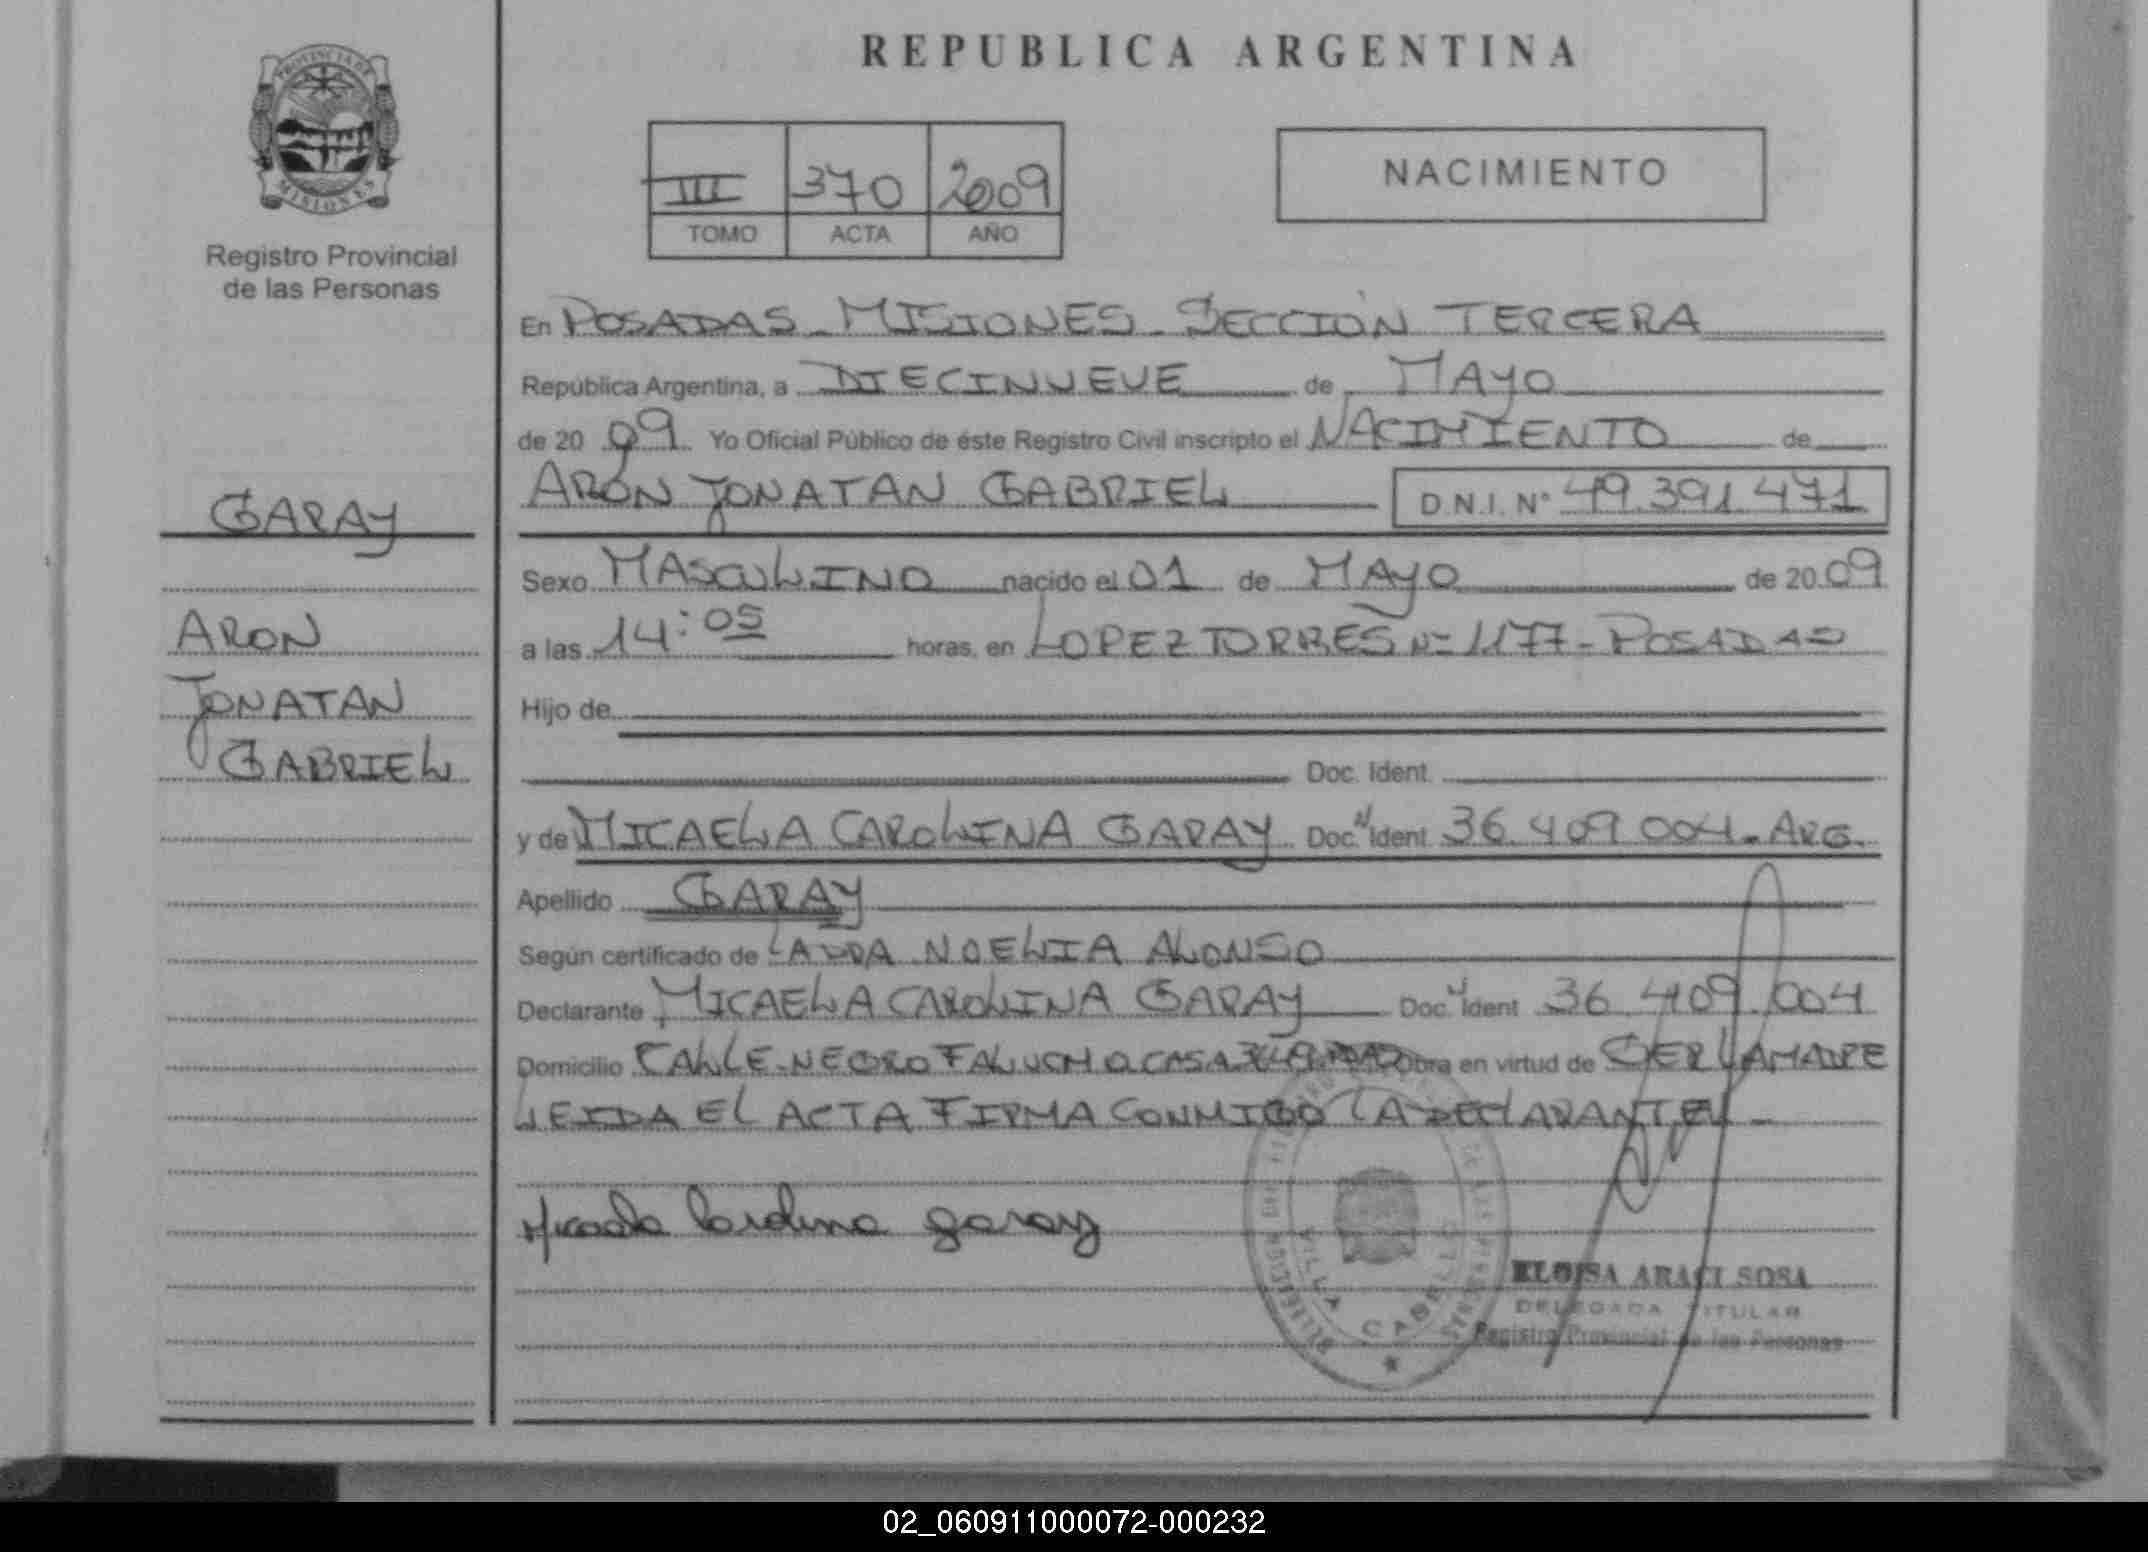 REPUBLICA ARGENTINA
PROVINCIA DE
MISIONES
Registro Provincial
de las Personas
III 370 2009
TOMO ACTA AÑO
NACIMIENTO
En POSADAS - MISIONES - SECCIÓN TERCERA
República Argentina, a DIECINUEVE de MAYO
de 20 09 Yo Oficial Público de éste Registro Civil inscripto el NACIMIENTO de
ARÓN JONATAN GABRIEL D.N.I. N° 49.391.471
GARAY
Sexo MASCULINO nacido el 01 de MAYO de 20 09
ARON
a las 14:05 horas, en LOPEZ TORRES Nº 1177 - POSADAS
JONATAN
Hijo de
GABRIEL
Doc. Ident.
y de MICAELA CAROLINA GARAY Doc. Ident. 36.409.004 - ARG.
Apellido GARAY
Según certificado de LAURA NOELIA ALONSO
Declarante MICAELA CAROLINA GARAY Doc. Ident 36.409.004
Domicilio CALLE - NEGRO FALUCHO CASA Obra en virtud de SER LA MADRE
LEIDA EL ACTA FIRMA CONMIGO LA DECLARANTE -
Micaela Carolina garay
VILLA CABELLO
ELOISA ARACI SOSA
DELEGADA TITULAR
Registro Provincial de las Personas
02_060911000072-000232